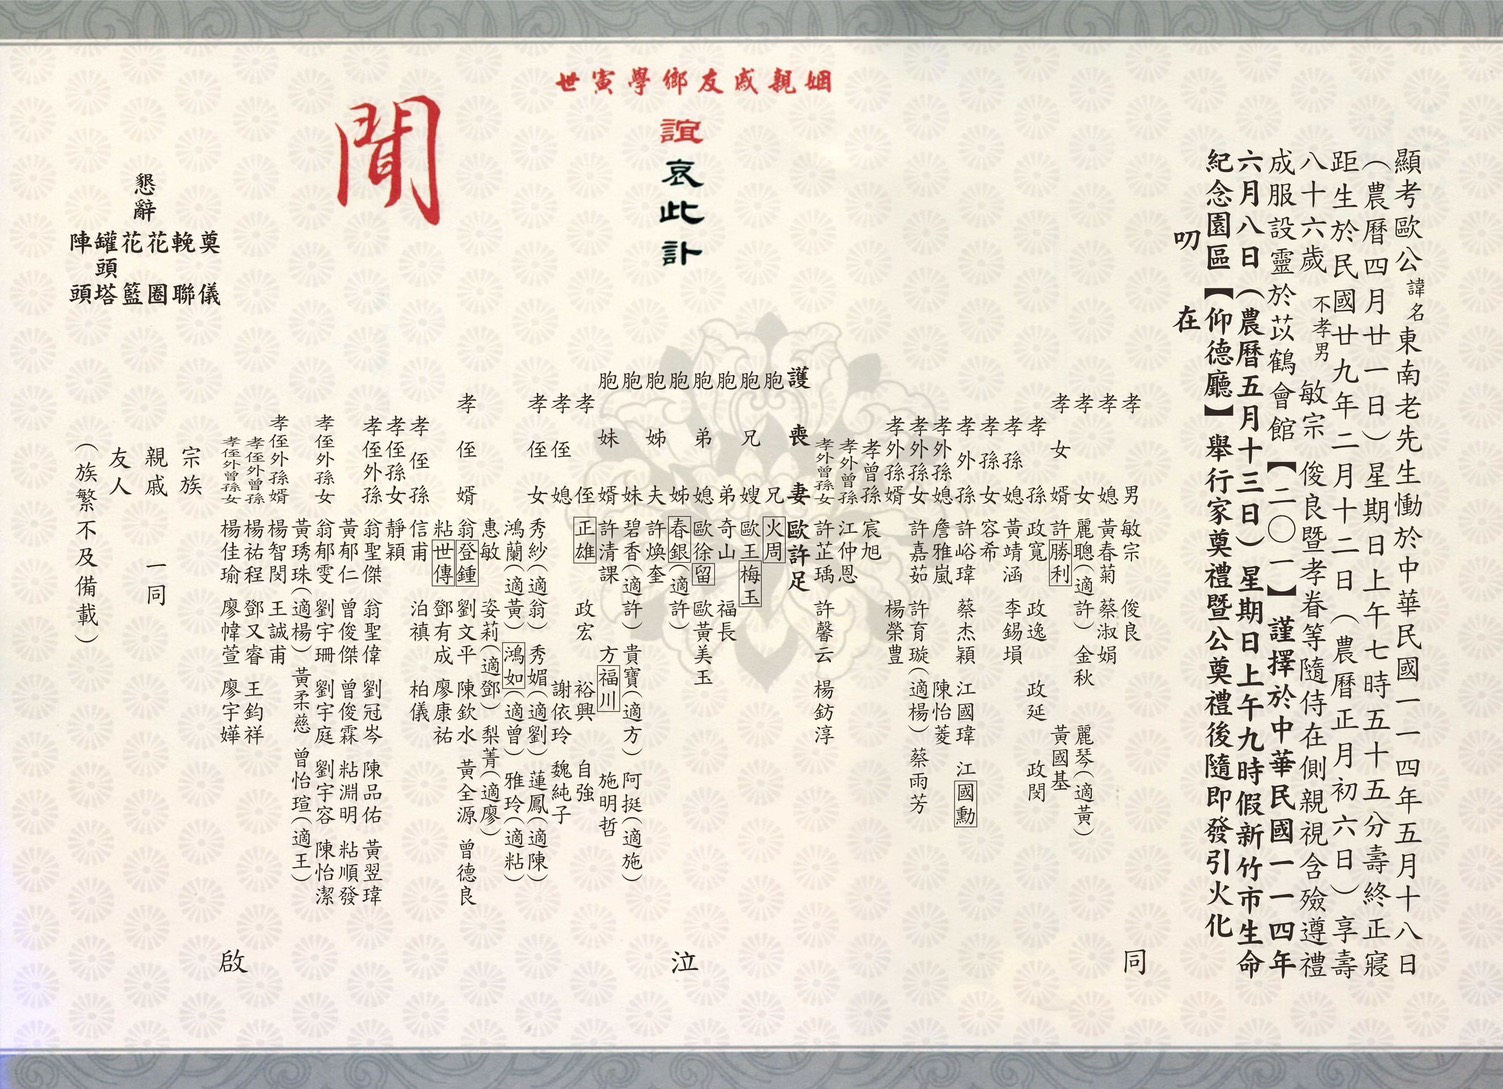 顯考歐公諱名東南老先生慟於中華民國一一四年五月十八日
（農曆四月廿一日）星期日上午七時五十五分壽終正寢
距生於民國廿九年二月十二日（農曆正月初六日）享壽
八十六歲 不孝男 敏宗 俊良暨孝眷等隨侍在側親視含殮遵禮
成服設靈於苡鶴會館【二〇一】謹擇於中華民國一一四年
六月八日（農曆五月十三日）星期日上午九時假新竹市生命
紀念園區【仰德廳】舉行家奠禮暨公奠禮後隨即發引火化
叨在
姻親戚友鄉學寅世
誼哀此訃
聞
孝男 敏宗 俊良
孝媳 黃春菊 蔡淑娟
孝女 麗聰（適許） 金秋 麗琴（適黃）
孝女婿 許勝利 黃國基
孝孫 政寬 政逸 政延 政閔
孝孫媳 黃靖涵 李錫塤
孝孫女 容希
孝外孫 許峪瑋 蔡杰穎 江國瑋 江國勳
孝外孫媳 詹雅嵐 陳怡菱
孝外孫女 許嘉茹 許育璇（適楊） 蔡雨芳
孝外孫婿 楊榮豊
孝曾孫 宸旭
孝外曾孫 江仲恩
孝外曾孫女 許芷瑀 許馨云 楊鈁淳
護喪妻 歐許足
胞兄 火周
胞兄嫂 歐王梅玉
胞弟 奇山 福長
胞弟媳 歐徐留 歐黃美玉
胞姊 春銀（適許）
胞姊夫 許煥奎
胞妹 碧香（適許） 貴寶（適方） 阿挺（適施）
胞妹婿 許清課 方福川 施明哲
孝侄 正雄 政宏 裕興 自強
孝侄媳 謝依玲 魏純子
孝侄女 秀紗（適翁） 秀媚（適劉） 蓮鳳（適陳）
鴻蘭（適黃） 鴻如（適曾） 雅玲（適粘）
惠敏 姿莉（適鄧） 梨菁（適廖）
孝侄婿 翁登鍾 劉文平 陳欽水 黃全源 曾德良
粘世傳 鄧有成 廖康祐
孝侄孫 信甫 泊禛 柏儀
孝侄孫女 靜穎
孝侄外孫 翁聖傑 翁聖偉 劉冠岑 陳品佑 黃翌瑋
黃郁仁 曾俊傑 曾俊霖 粘淵明 粘順發
孝侄外孫女 翁郁雯 劉宇珊 劉宇庭 劉宇容 陳怡潔
黃琇珠（適楊） 黃柔慈 曾怡瑄（適王）
孝侄外孫婿 楊智閔 王誠甫
孝侄外曾孫 楊祐程 鄧又睿 王鈞祥
孝侄外曾孫女 楊佳瑜 廖幃萱 廖宇嬅
同
泣
啟
宗族
親戚 一同
友人
（族繁不及備載）
懇辭
奠儀
輓聯
花圈
花籃
罐頭塔
陣頭